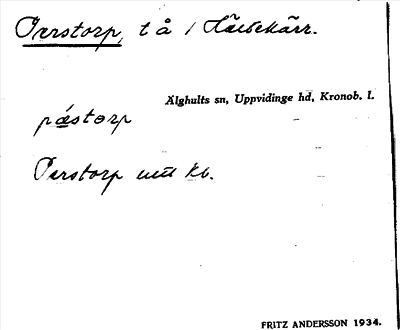 Perstorp, t å / Hälsekärr.
Älghults sn, Uppvidinge hd, Kronob. l.
pæ̀storp
Perstorp utt kb.
FRITZ ANDERSSON 1934.